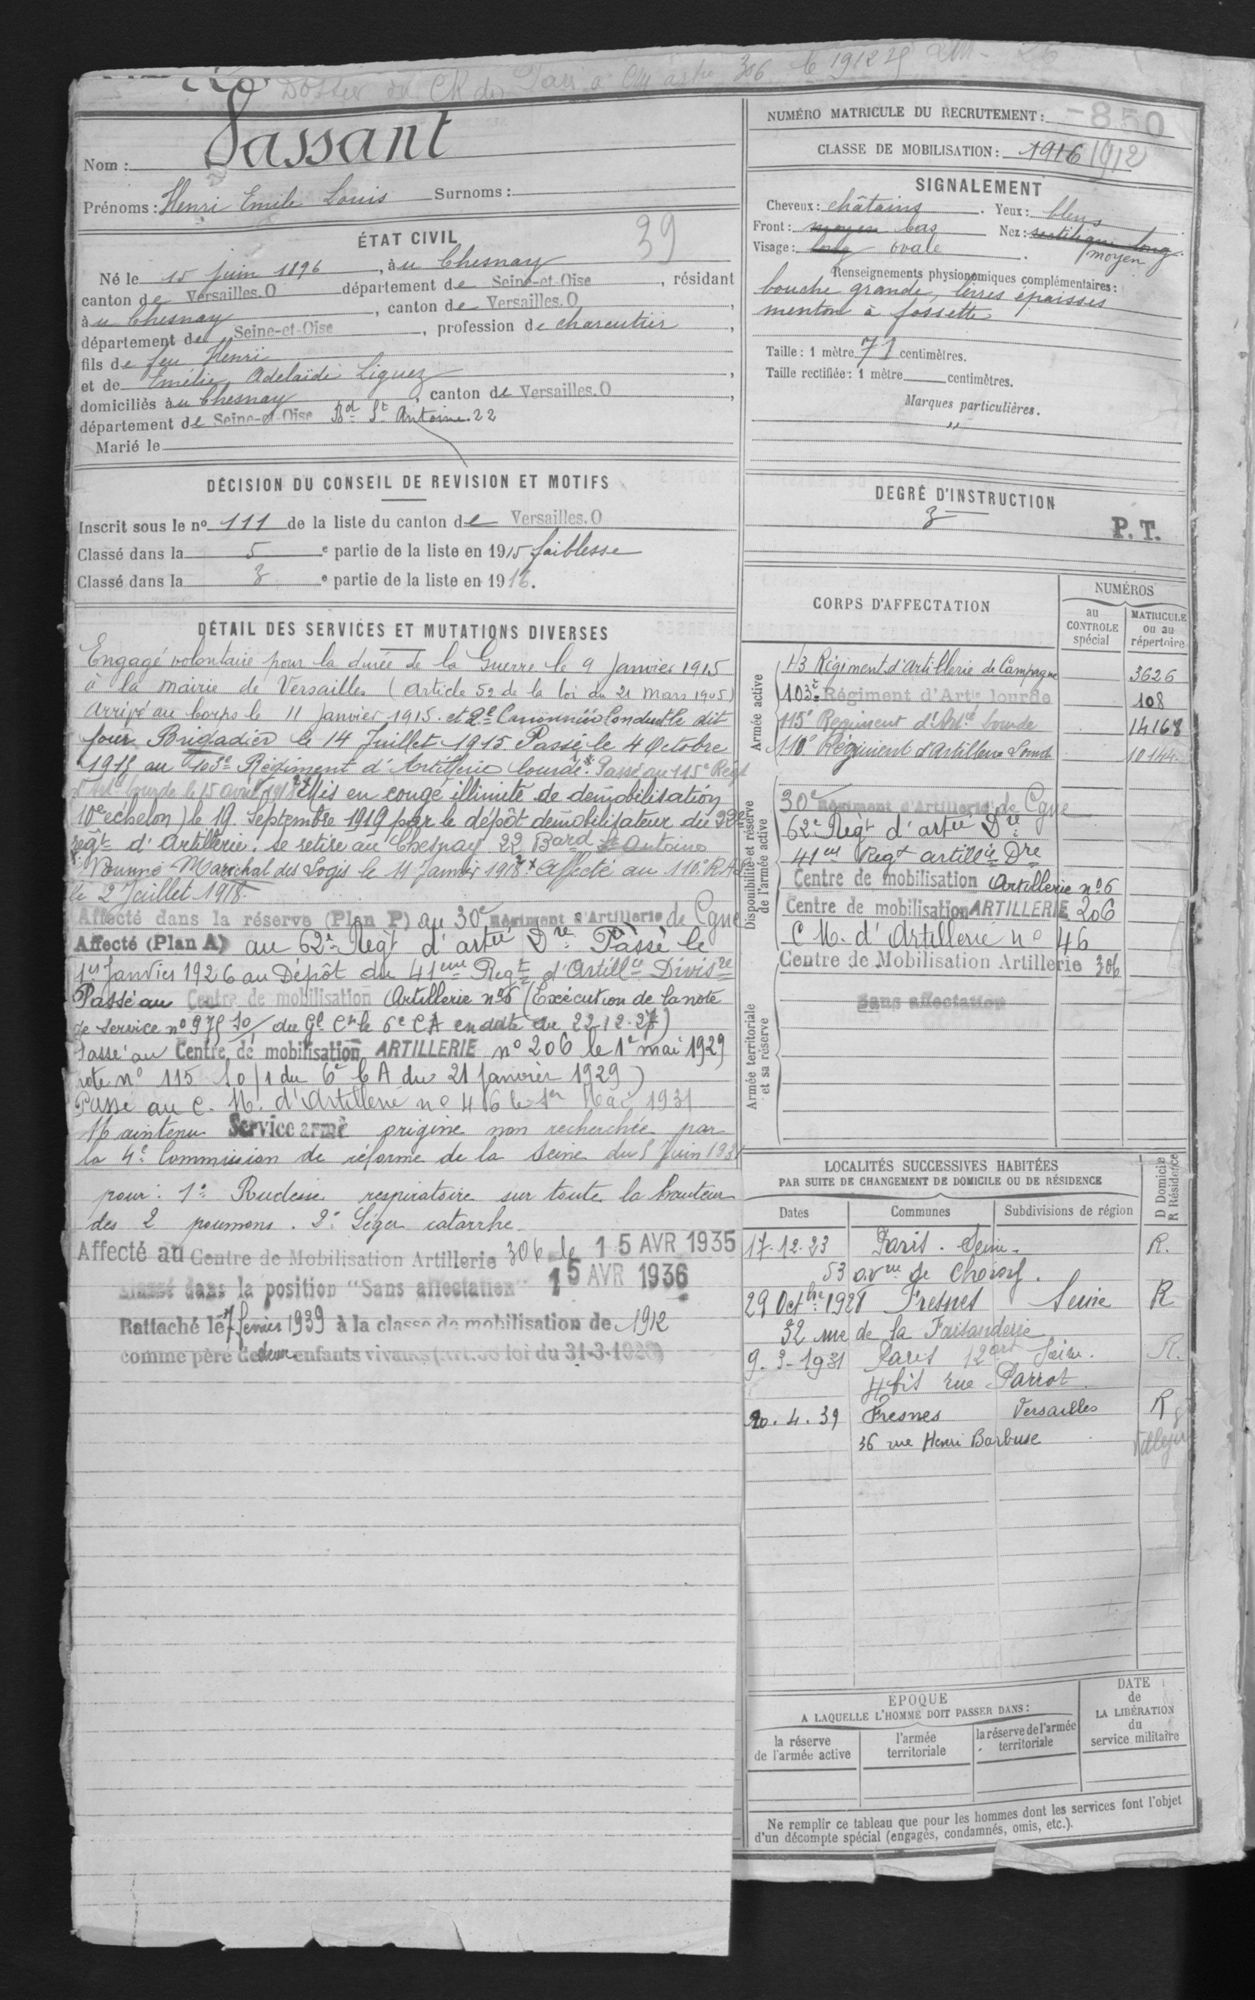 Nom : Vassant
Prénoms : Henri Emile Louis Surnoms :
ÉTAT CIVIL 39
Né le 15 juin 1896, au Chesnay
canton de Versailles.O département de Seine-et-Oise, résidant
à u Chesnay, canton de Versailles.O,
département de Seine-et-Oise, profession de charcutier,
fils de feu Henri
et de Emélie Adelaïde Liguez,
domiciliés à u Chesnay, canton de Versailles.O,
département de Seine-et-Oise Bd St Antoine.22
Marié le
DÉCISION DU CONSEIL DE REVISION ET MOTIFS
Inscrit sous le no 111 de la liste du canton de Versailles.O
Classé dans la 5 e partie de la liste en 1915 faiblesse
Classé dans la 3 e partie de la liste en 1916.
DÉTAIL DES SERVICES ET MUTATIONS DIVERSES
Engagé volontaire pour la durée de la Guerre le 9 Janvier 1915
à la mairie de Versailles (article 52 de la loi du 21 Mars 1905)
Arrivé au Corps le 11 Janvier 1915. et 2e Canonnier Conducteur le dit
jour Brigadier le 14 Juillet 1915 Passé le 4 Octobre
1915 au 103e Régiment d'Artillerie lourde. Passé au 115e Régt
d'Art. lourde le 15 avril 1918 Mis en congé illimité de démobilisation
10e échelon) le 19 Septembre 1919 par le dépôt démobilisateur du 22e
Régt d'Artillerie. Se retire au Chesnay 22 Bard St Antoine
Nommé Maréchal des Logis le 11 Janvier 1918 x Affecté au 110e RAL
le 2 Juillet 1918.
Affecté dans la réserve (Plan P) au 30e Régiment d'Artillerie de Cgne
Affecté (Plan A) au 62e Régt d'artie Dre Passé le
1er Janvier 1926 au Dépôt du 41eme Regt d'Artillie Divisre
Passé au Centre de mobilisation Artillerie no 6 (Exécution de la note
de service no 975 10/ du Gl Ct le 6e CA en date du 22.12.27)
Passé au Centre de mobilisation ARTILLERIE no 206 le 1er mai 1929
note no 115 10/1 du 6e C A du 21 Janvier 1929)
Passé au C. M. d'Artillerie no 46 le 1er Mai 1931
Maintenu Service armé origine non recherchée par
la 4e Commission de réforme de la Seine du 5 Juin 1931
pour : 1o Rudesse respiratoire sur toute la hauteur
des 2 poumons. 2o Léger catarrhe.
Affecté au Centre de Mobilisation Artillerie 306 le 15 AVR 1935
Classé dans la position "Sans affectation" 15 AVR 1936
Rattaché le 7 fevrier 1939 à la classe de mobilisation de 1912
comme père de deux enfants vivants (Art. 58 loi du 31-3-1928)
NUMÉRO MATRICULE DU RECRUTEMENT : -850
CLASSE DE MOBILISATION : 1916 1912
SIGNALEMENT
Cheveux : châtains. Yeux : bleus
Front : moyen bas Nez : rectiligne long
Visage : long ovale. moyen
Renseignements physionomiques complémentaires :
bouche grande, lèvres épaisses
menton à fossette
Taille : 1 mètre 71 centimètres.
Taille rectifiée : 1 mètre centimètres.
Marques particulières.
"
DEGRÉ D'INSTRUCTION
3
P.T.
CORPS D'AFFECTATION
NUMÉROS
au CONTROLE spécial
MATRICULE ou au répertoire
Armée active
43 Régiment d'Artillerie de Campagne 3626
103e Régiment d'Artie lourde 108
115e Régiment d'Artie lourde 14168
110e Régiment d'Artillerie Lourde 10144
Disponibilité et réserve de l'armée active
30e Régiment d'Artillerie de Cgne
62e Régt d'artie Dre
41eme Regt artillie Dre
Centre de mobilisation Artillerie no 6
Centre de mobilisation ARTILLERIE 206
C M. d'Artillerie no 46
Centre de Mobilisation Artillerie 306
Sans affectation
Armée territoriale et sa réserve
LOCALITÉS SUCCESSIVES HABITÉES
PAR SUITE DE CHANGEMENT DE DOMICILE OU DE RÉSIDENCE
D Domicile R Résidence
Dates Communes Subdivisions de région
17.12.23 Paris. Seine. R.
53 avnue de Choisy.
29 Octbre 1928 Fresnes Seine R
32 rue de la Faisanderie
9.3-1931 Paris 12e art Seine. R.
4 bis rue Parrot
20.4.39 Fresnes Versailles R
36 rue Henri Barbuse
ÉPOQUE
A LAQUELLE L'HOMME DOIT PASSER DANS :
DATE de LA LIBÉRATION du service militaire
la réserve de l'armée active
l'armée territoriale
la réserve de l'armée territoriale
Ne remplir ce tableau que pour les hommes dont les services font l'objet
d'un décompte spécial (engagés, condamnés, omis, etc.).